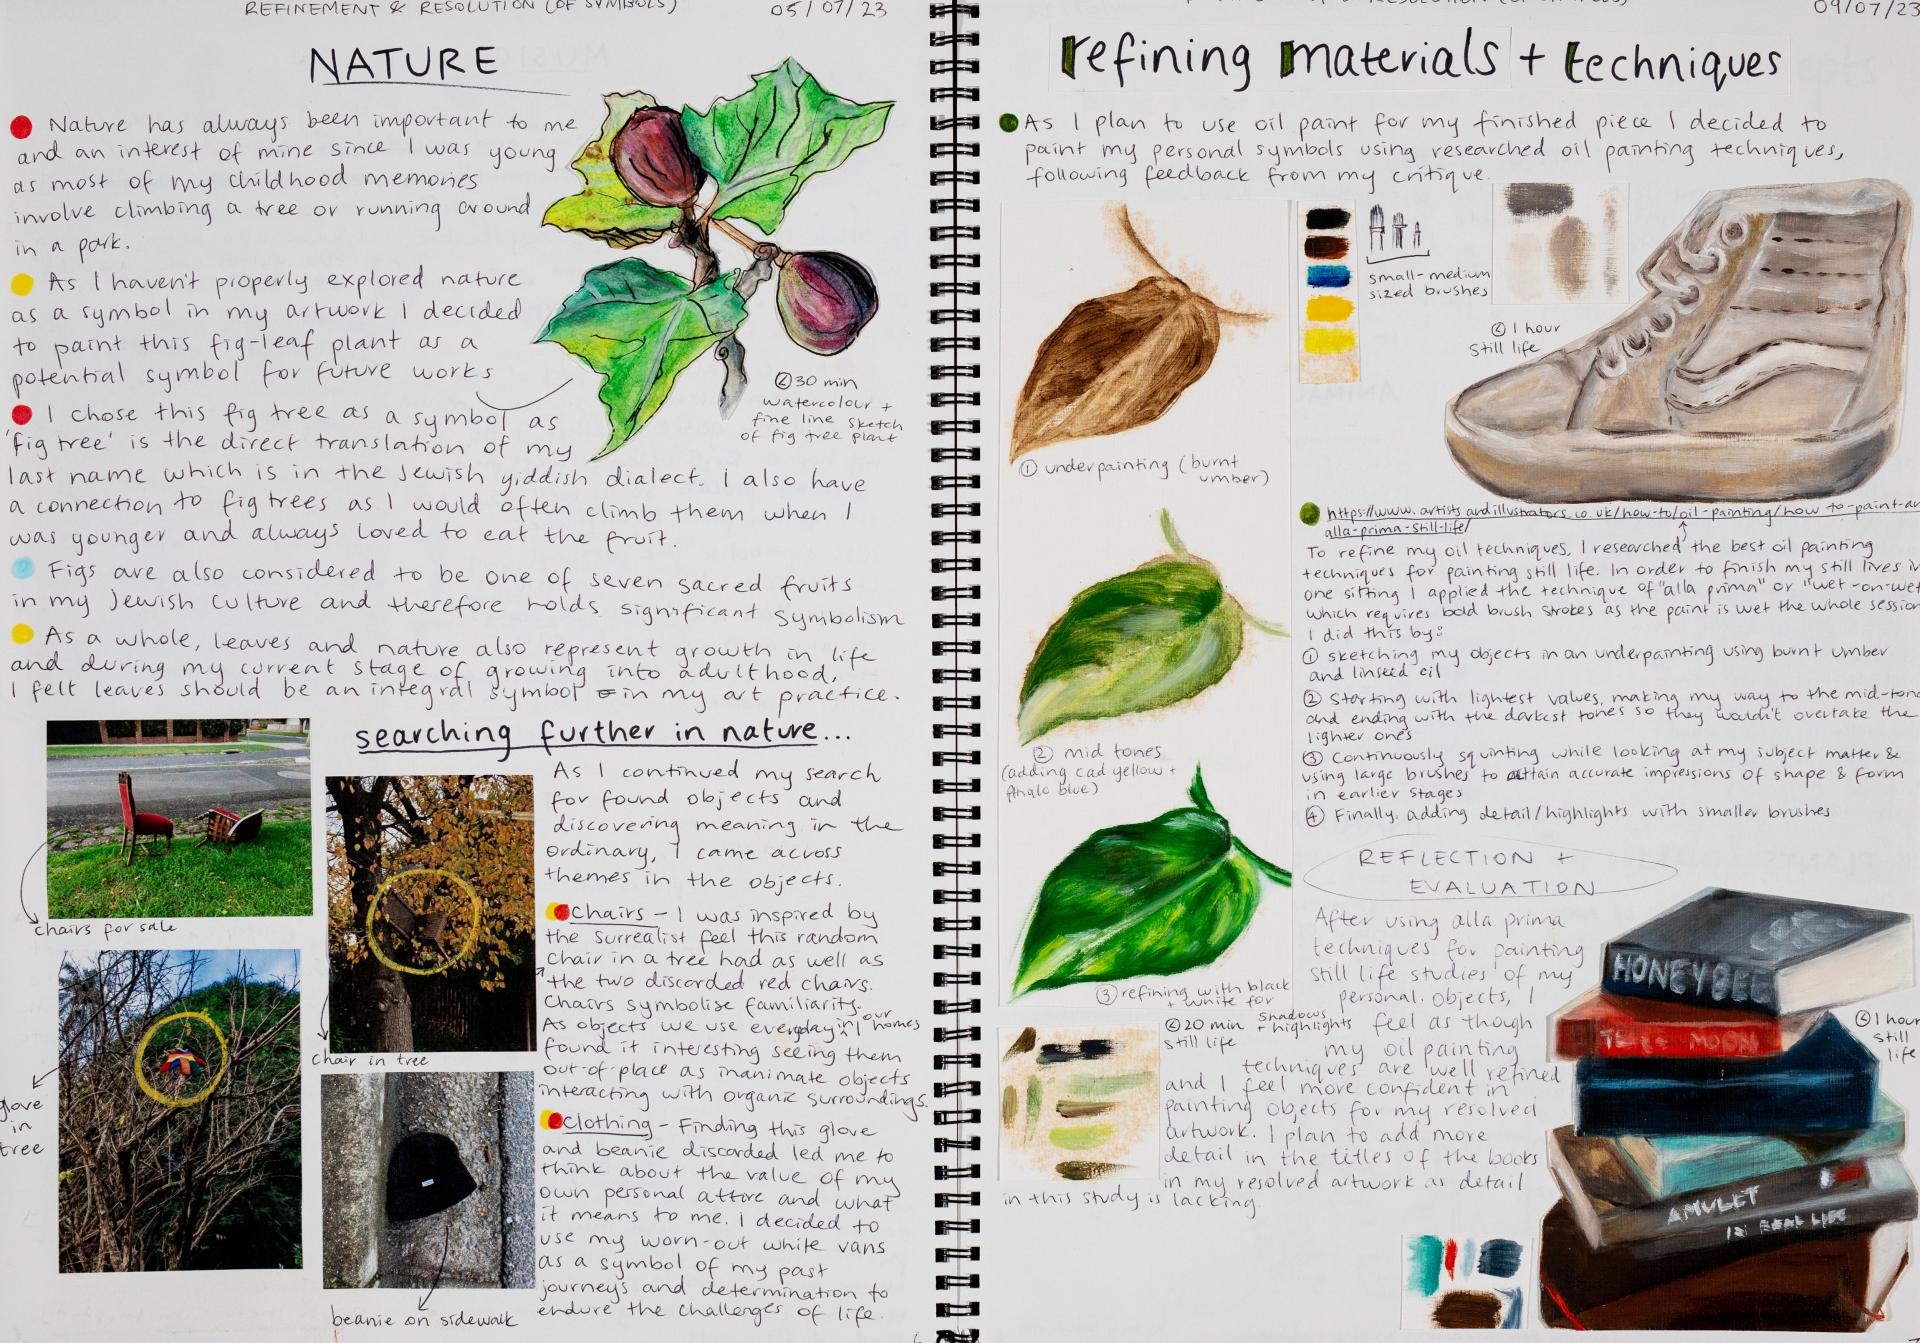 REFINEMENT & RESOLUTION (OF SYMBOLS)
05/07/23
NATURE
Nature has always been important to me
and an interest of mine since I was young
as most of my childhood memories
involve climbing a tree or running around
in a park.
As I haven't properly explored nature
as a symbol in my artwork I decided
to paint this fig-leaf plant as a
potential symbol for future works
I chose this fig tree as a symbol as
'fig tree' is the direct translation of my
last name which is in the Jewish yiddish dialect. I also have
a connection to fig trees as I would often climb them when I
was younger and always loved to eat the fruit.
Figs are also considered to be one of seven sacred fruits
in my Jewish culture and therefore holds significant symbolism
As a whole, leaves and nature also represent growth in life
and during my current stage of growing into adulthood,
I felt leaves should be an integral symbol in my art practice.
30 min
watercolour +
fine line sketch
of fig tree plant
searching further in nature...
As I continued my search
for found objects and
discovering meaning in the
ordinary, I came across
themes in the objects.
Chairs - I was inspired by
the surrealist feel this random
chair in a tree had as well as
the two discarded red chairs.
Chairs symbolise familiarity.
As objects we use everyday in our homes I
found it interesting seeing them
out-of-place as inanimate objects
interacting with organic surroundings.
Clothing - Finding this glove
and beanie discarded led me to
think about the value of my
own personal attire and what
it means to me. I decided to
use my worn-out white vans
as a symbol of my past
journeys and determination to
endure the challenges of life.
chairs for sale
chair in tree
glove
in
tree
beanie on sidewalk
09/07/23
refining materials + techniques
As I plan to use oil paint for my finished piece I decided to
paint my personal symbols using researched oil painting techniques,
following feedback from my critique.
small-medium
sized brushes
1 hour
still life
① underpainting (burnt
umber)
② mid tones
(adding cad yellow +
pthalo blue)
③ refining with black
+ white for
shadows
+ highlights
20 min
still life
https://www.artistsandillustrators.co.uk/how-to/oil-painting/how-to-paint-an
alla-prima-still-life/
To refine my oil techniques, I researched the best oil painting
techniques for painting still life. In order to finish my still lives in
one sitting I applied the technique of "alla prima" or "wet-on-wet
which requires bold brush strokes as the paint is wet the whole session
I did this by:
① sketching my objects in an underpainting using burnt umber
and linseed oil
② Starting with lightest values, making my way to the mid-tone
and ending with the darkest tones so they wouldn't overtake the
lighter ones
③ Continuously squinting while looking at my subject matter &
using large brushes to attain accurate impressions of shape & form
in earlier stages
④ Finally, adding detail/highlights with smaller brushes
REFLECTION +
EVALUATION
After using alla prima
techniques for painting
still life studies of my
personal objects, I
feel as though
my oil painting
techniques are well refined
and I feel more confident in
painting objects for my resolved
artwork. I plan to add more
detail in the titles of the books
in my resolved artwork as detail
in this study is lacking.
1 hour
still
life
HONEYBEE
MOON
AMULET
IN REAL LIFE